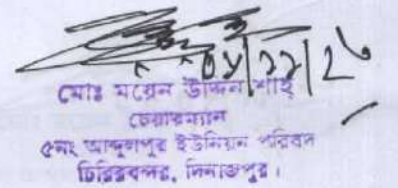 ০৮/১১/২৩
মোঃ ময়েন উদ্দিন শাহ্
চেয়ারম্যান
৫নং আব্দুলপুর ইউনিয়ন পরিষদ
চিরিরবন্দর, দিনাজপুর।